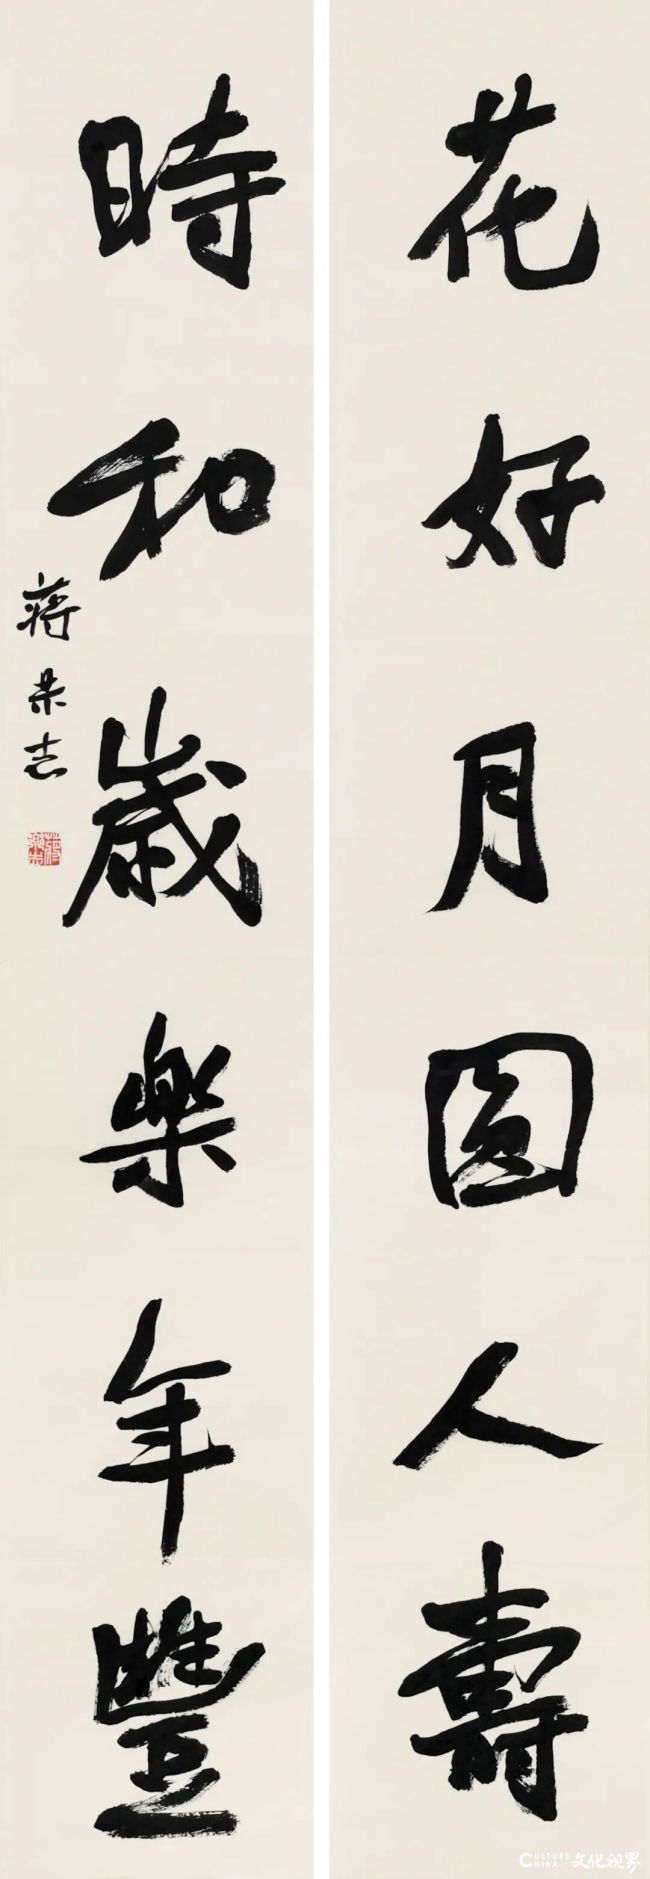 花好月圓人壽
時和歲樂年豐
蔣
CULTURE CHINA 文化视界